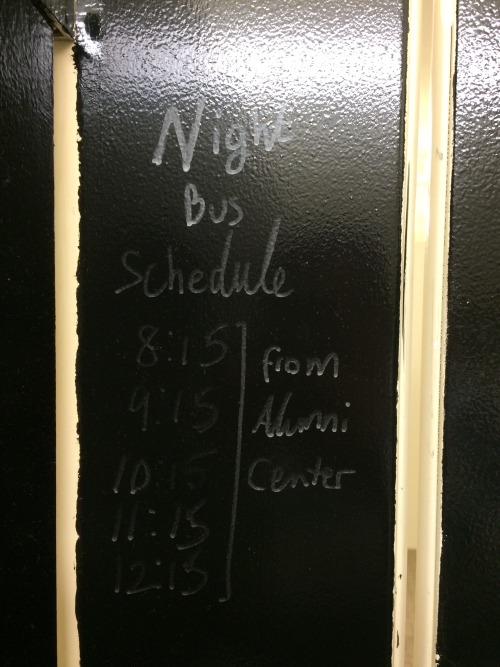 Night
Bus
Schedule
8:15
9:15
10:15
11:15
12:15
from
Alumni
Center